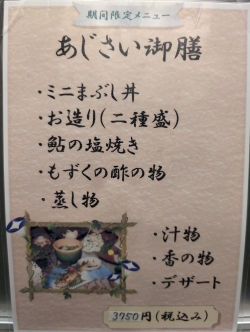 期間限定メニュー
あじさい御膳
・ミニまぶし丼
・お造り(二種盛)
・鮎の塩焼き
・もずくの酢の物
・蒸し物
・汁物
・香の物
・デザート
3750円(税込み)